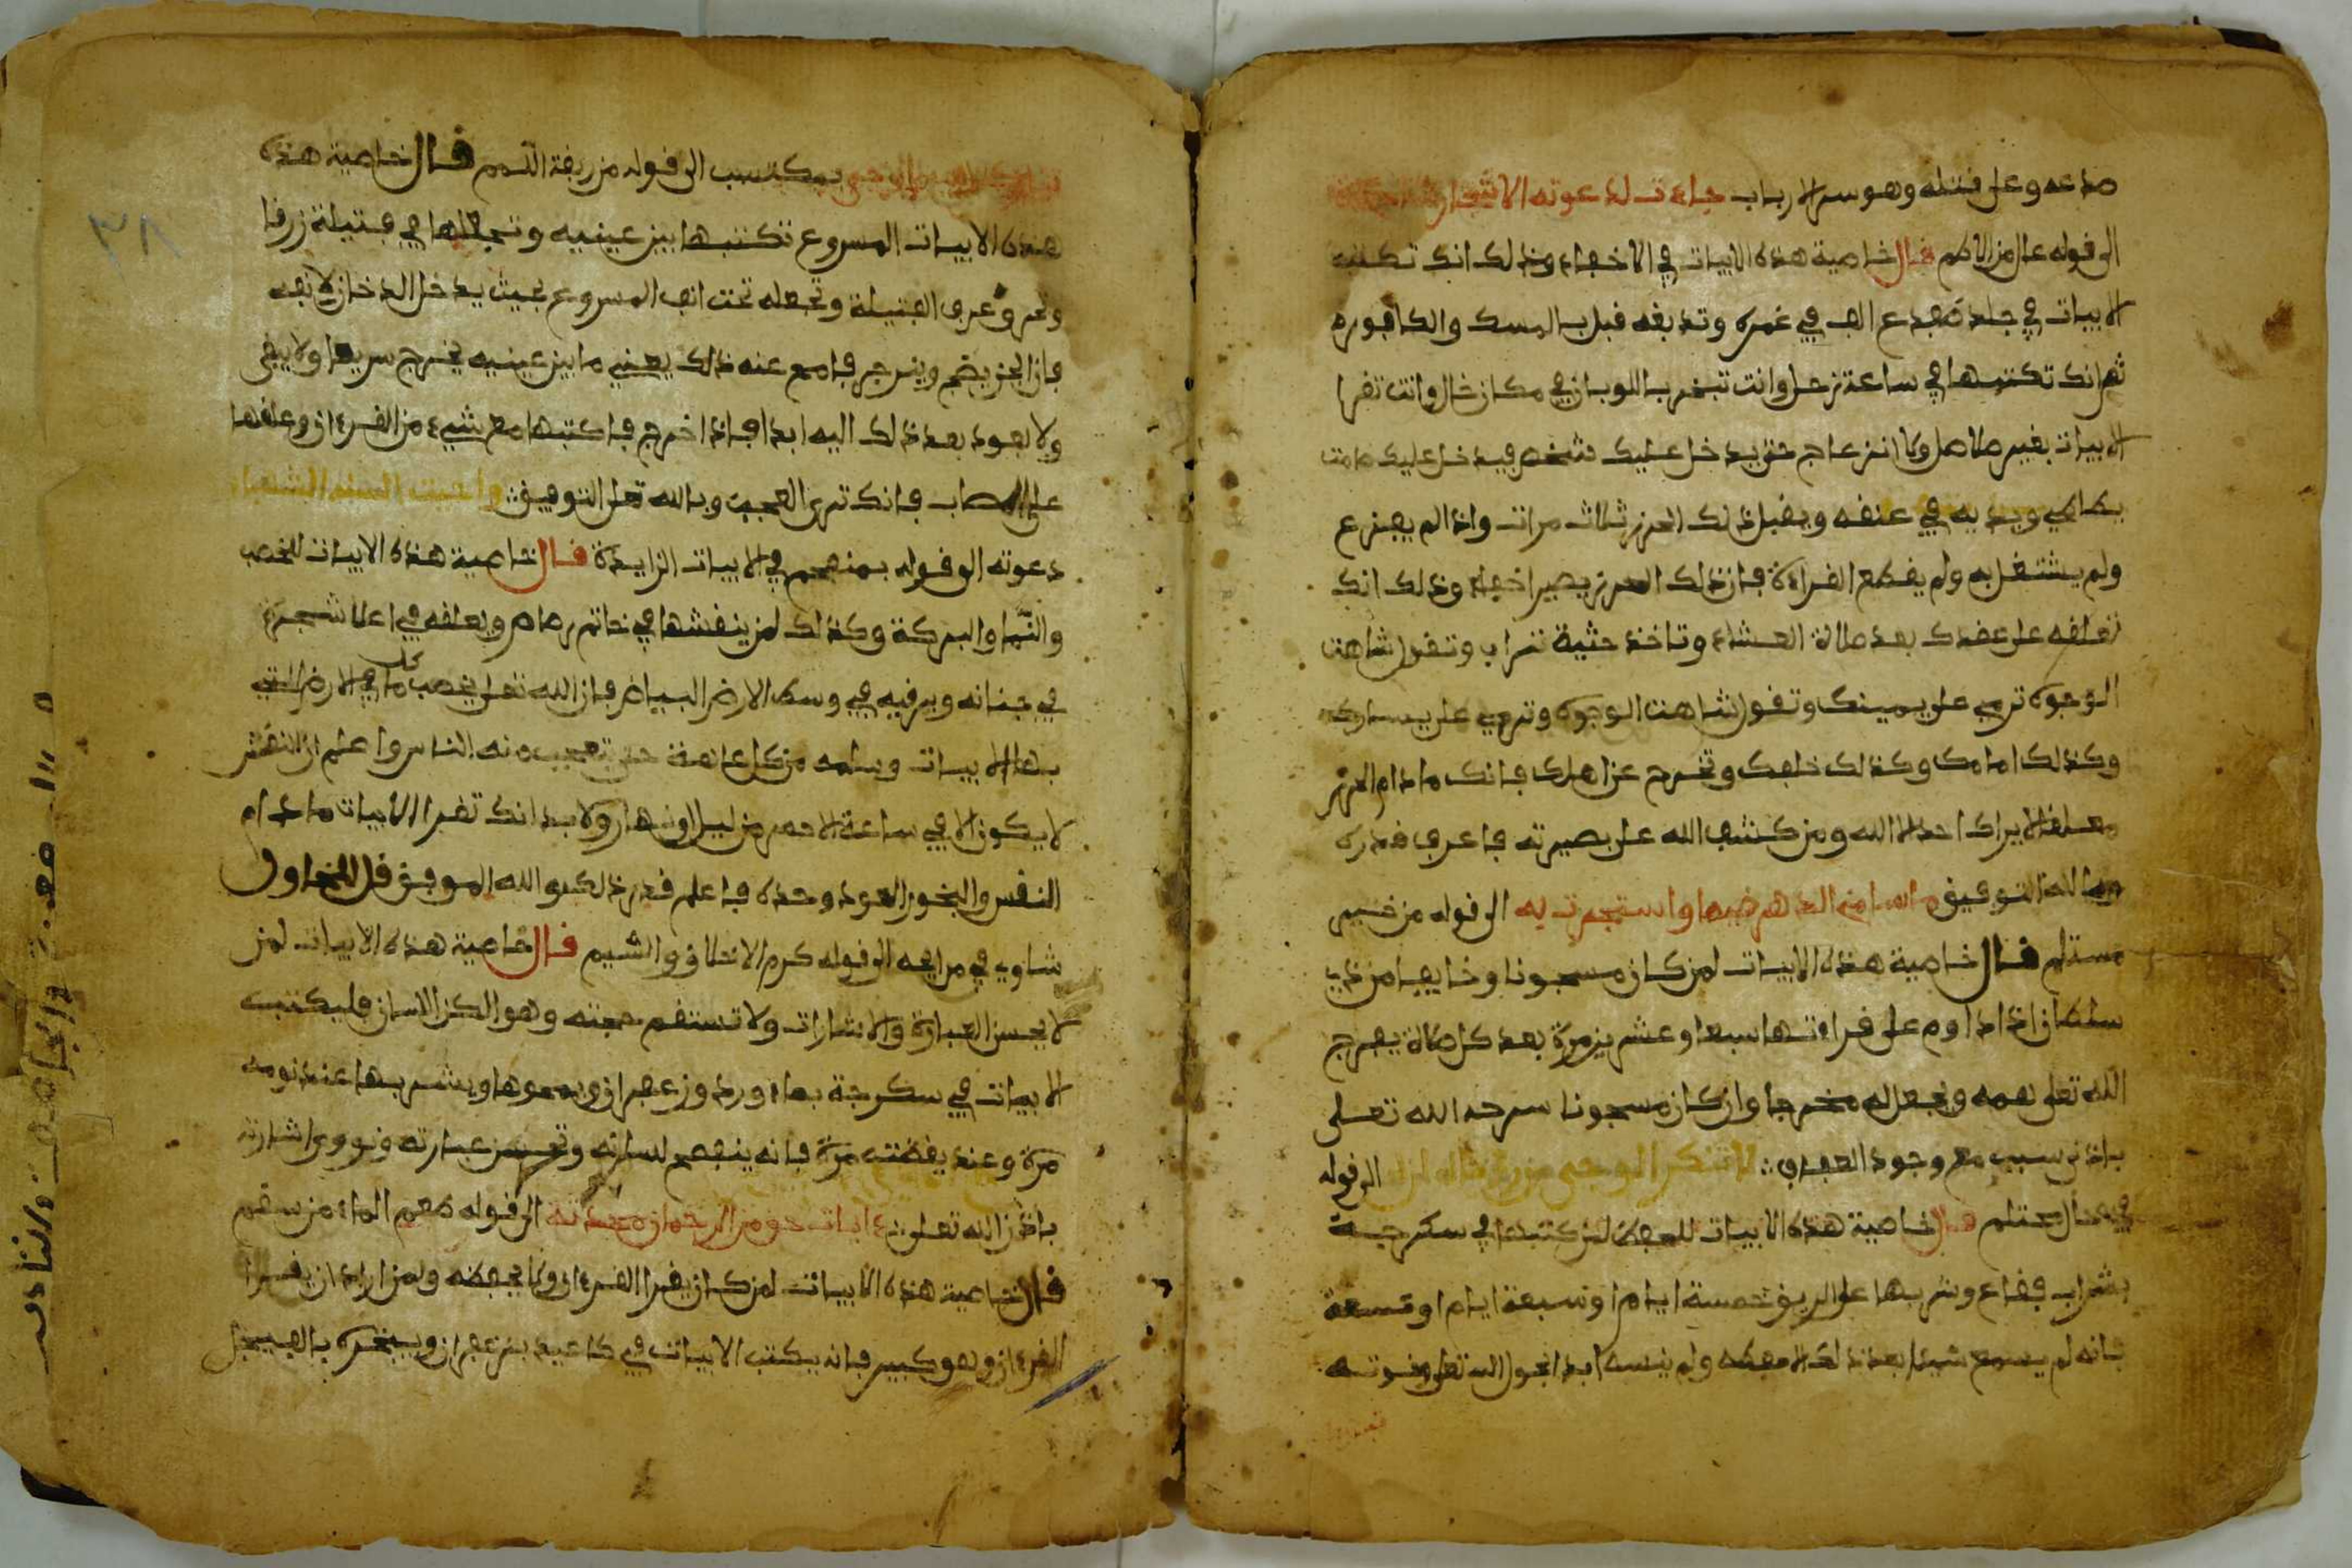 صدعه وعلى فتله وهو سر الارباب جاءت لدعوته الاشجار ساجدة
الى قوله عال من الاطم قال خاصية هذه الابيات في الاخفاء وذلك انك تكتب
الابيات في جلد ضفدع الف في غمره وتدبغه قبل بالمسك والكافوره
ثم انك تكتبها في ساعة زحل وانت تبخر باللوبان في مكان خال وانت تقرا
الابيات بغير طاصل ولا انزعاج حتى يدخل عليك شخص فيدخل عليك صامت
ويديه في عنقه ويقبل ذلك الحرز ثلاث مرات واذا لم يجزع
ولم يشتغل به ولم يقطع القراءة فان ذلك الحرز يصير اخفاء وذلك انك
تعلقه على عضدك بعد صلاة العشاء وتاخذ حثية تراب وتقول شاهت
الوجوه ترمي على يمينك وتقول شاهت الوجوه وترمي على يسارك
وكذلك امامك وكذلك خلفك وتخرج عن اهلك فانك مادام الحرز
معلقا لا يراك احد الا الله ومن كشف الله على بصيرته فاعرف قدره
وبالله التوفيق ما سامني الدهر ضيما واستجرت به الى قوله من خير
مستلم قال خاصية هذه الابيات لمن كان مسجونا وخايفا من ذي
سلطان اذا داوم على قراءتها سبعا وعشرين مرة بعد كل صلاة يفرج
الله تعلى همه ويجعل له مخرجا وان كان مسجونا سرحه الله تعلى
باذني سبب مع وجود الصدق ؞ لا تنكر الوحي من رؤياه ان له الى قوله
فيه حال محتلم قال خاصية هذه الابيات للحفظ لمن كتبها في سكرجة
بشراب فقاع وشربها على الريق خمسة ايام او سبعة ايام او تسعة
فانه لم يسمع شيئا بعد ذلك الا حفظه ولم ينسه ابدا بحول الله تعلى وقوته
تبارك الله ما وحي بمكتسب الى قوله من ربقة اللمم قال خاصية هذه
هذه الابيات المسروع تكتبها بين عينيه وتجعلها في فتيلة زرقا
وتحرق عرف الفتيلة وتجعله تحت انف المسروع بحيث يدخل الدخان لانفه
فان الجن يضج وينزجر فامح عنه ذلك يعني ما بين عينيه يخرج سريعا ولا يبقى
ولا يعود بعد ذلك اليه ابدا فاذا خرج فاكتبها مع شيء من القرءان وعلقها
على المصاب فانك ترى العجب وبالله تعلى التوفيق ؞ واحيت السنة الشهباء
دعوته الى قوله بمنهجم في الابيات الزايدة قال خاصية هذه الابيات للخصب
والنما والبركة وكذلك لمن ينقشها في خاتم رصاص ويعلقه في اعلا شجرة
في جنانه ويرقيه في وسط الارض البياض فان الله تعلى يخصب كل ما في الارض التي
بها الابيات ويسلمه من كل عاهة حتى تعجب منه الناس واعلم ان النقش
لا يكون الا في ساعة الاحمر من ليل او نهار ولا بد انك تقرا الابيات ما دام
النقش والبخور العود وحده فاعلم قدر ذلك والله الموفق قل للمحاول
شاوي في مدايحه الى قوله كرم الاخلاق والشيم قال خاصية هذه الابيات لمن
لا يحسن العبارة والاشارات ولا تستقم حجته وهو الكن اللسان فليكتب
الابيات في سكرجة بماء ورد وزعفران ويمحوها ويشربها عند نومه
مرة وعند يقضته مرة فانه ينفصح لسانه وتحسن عبارته وتقوى اشارته
باذن الله تعلى ؞ ءايات حق من الرحمان محدثة الى قوله طعم الماء من سقم
قال خاصية هذه الابيات لمن كان يقرا القرءان ولا يحفظه ولمن اراد ان يقرا
القرءان وهو كبير فانه يكتب الابيات في كاغيد بزعفران ويبخره بالفيجل
٣٨